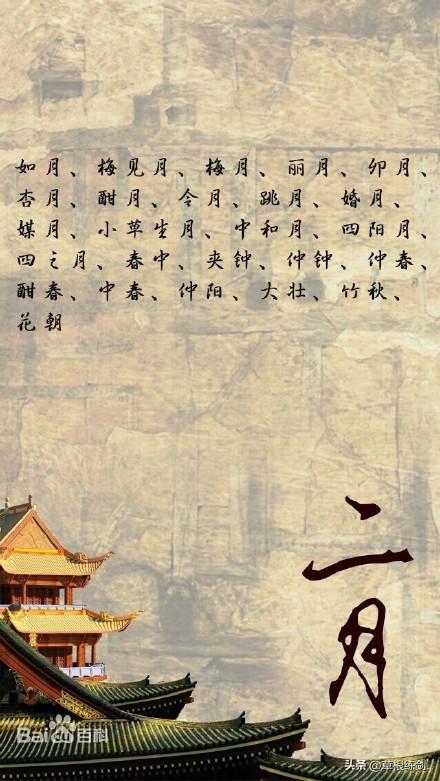 如月、梅见月、梅月、丽月、卯月、
杏月、酣月、令月、跳月、婚月、
媒月、小草生月、中和月、四阳月、
四之月、春中、夹钟、仲钟、仲春、
酣春、中春、仲阳、大壮、竹秋、
花朝
二月
Bai百科
头条 @草根练剑